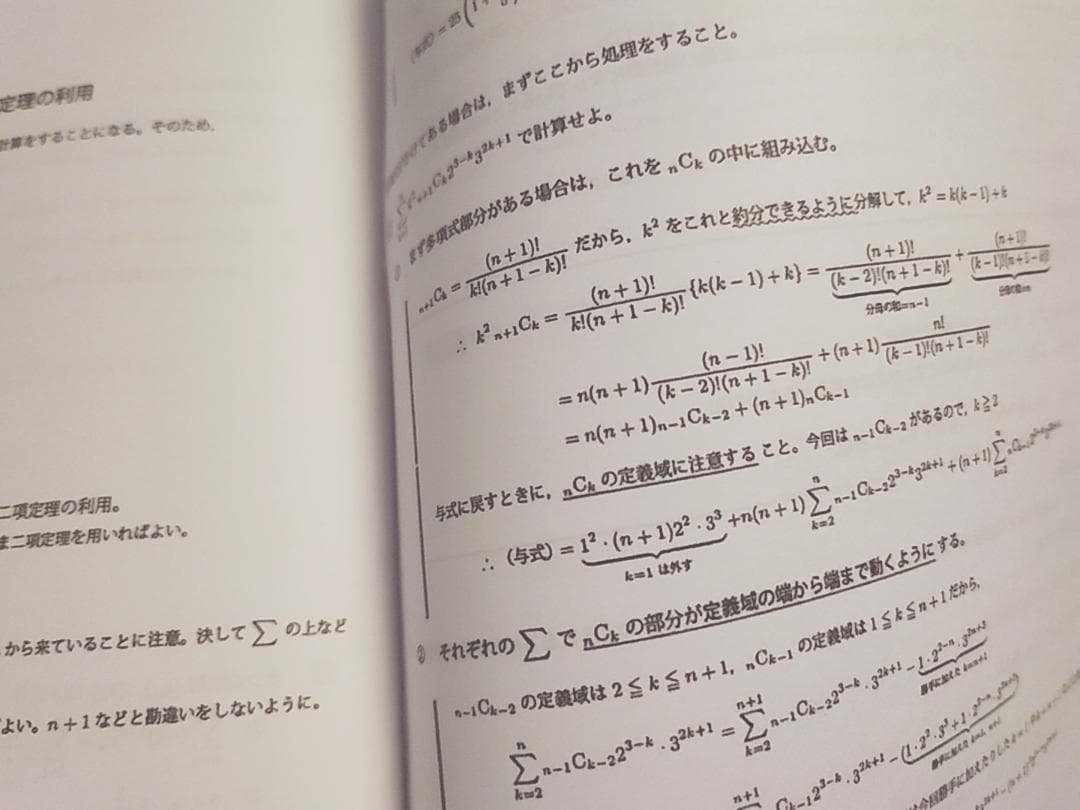 定理の利用
計算をすることになる。そのため,
二項定理の利用。
ま二項定理を用いればよい。
から来ていることに注意。決して ∑ の上など
よい。n+1 などと勘違いをしないように。
である場合は,まずここから処理をすること。
n+1Ck 2^{3-k} 3^{2k+1} で計算せよ。
① まず多項式部分がある場合は,これを nCk の中に組み込む。
n+1Ck = (n+1)!/(k!(n+1-k)!) だから,k^2 をこれと約分できるように分解して,k^2 = k(k-1)+k
∴ k^2 n+1Ck = (n+1)!/(k!(n+1-k)!) {k(k-1)+k} = (n+1)!/((k-2)!(n+1-k)!) + (n+1)!/((k-1)!(n+1-k)!)
分母の和=n-1 分母の和=n
= n(n+1) (n-1)!/((k-2)!(n+1-k)!) + (n+1) n!/((k-1)!(n+1-k)!)
= n(n+1) n-1Ck-2 + (n+1) nCk-1
与式に戻すときに,nCk の定義域に注意すること。今回は n-1Ck-2 があるので,k≧2
∴ (与式) = 1^2・(n+1)2^2・3^3 + n(n+1) ∑_{k=2}^{n} n-1Ck-2 2^{3-k} 3^{2k+1} + (n+1) ∑_{k=2}^{n}
k=1 は外す
② それぞれの ∑ で nCk の部分が定義域の端から端まで動くようにする。
n-1Ck-2 の定義域は 2≦k≦n+1,nCk-1 の定義域は 1≦k≦n+1 だから,
∑_{k=2}^{n} n-1Ck-2 2^{3-k}・3^{2k+1} = ∑_{k=2}^{n+1} n-1Ck-2 2^{3-k}・3^{2k+1} - 1・2^{2-n}・3^{2n+3}
勝手に加えた k=n+1
n+1 Ck-1 2^{3-k}・3^{2k+1} - (1・2^2・3^3 + 1・2^{2-n}・3^{2n+3})
勝手に加えた k=1, n+1